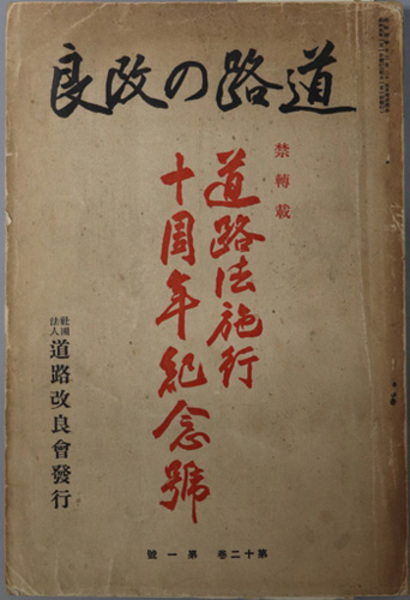 道路の改良
禁轉載
道路法施行
十周年紀念號
社團法人
道路改良會發行
第十二卷 第一號